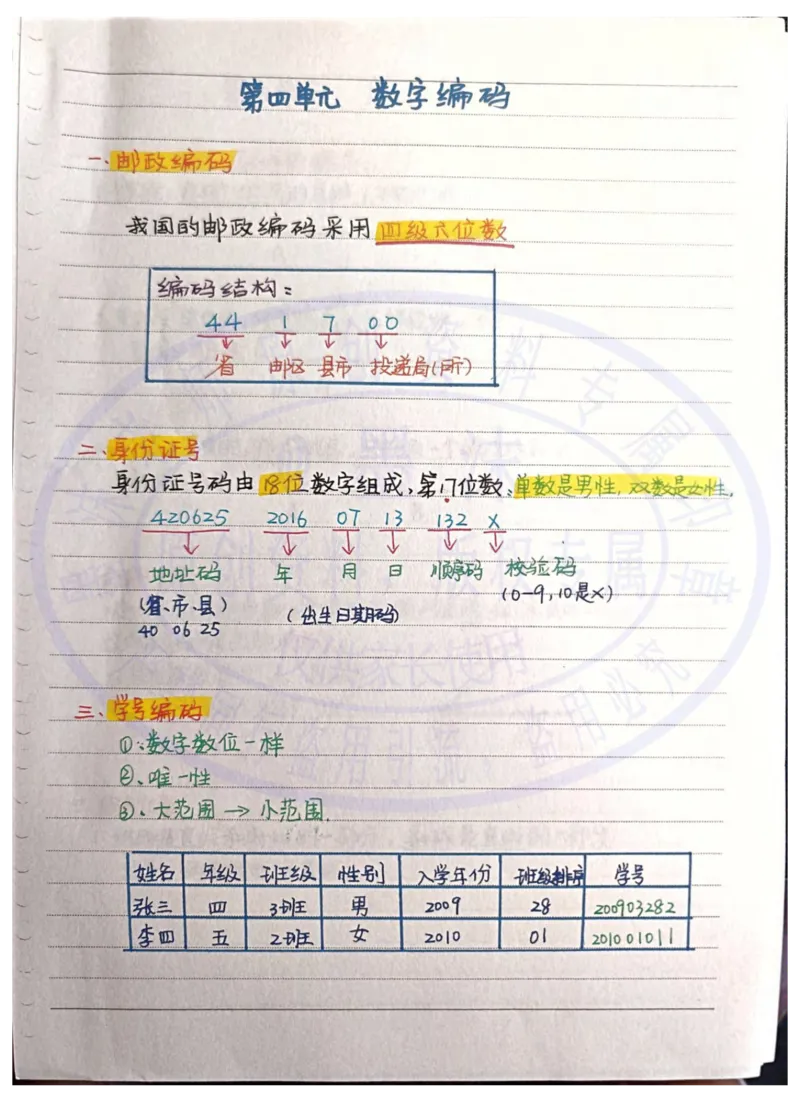 第四单元 数字编码
一、邮政编码
我国的邮政编码采用四级六位数
编码结构：
44 1 7 00
省 邮区 县市 投递局(所)
二、身份证号
身份证号码由18位数字组成,第17位数:单数是男性,双数是女性.
420625 2016 07 13 132 X
地址码 年 月 日 顺序码 校验码
(省、市、县) (出生日期码) (0-9,10是X)
40 06 25
三、学号编码
①、数字数位一样
②、唯一性
③、大范围→小范围.
姓名 年级 班级 性别 入学年份 班级排序 学号
张三 四 3班 男 2009 28 200903282
李四 五 2班 女 2010 01 201001011
仅供家长使用
盗用必究